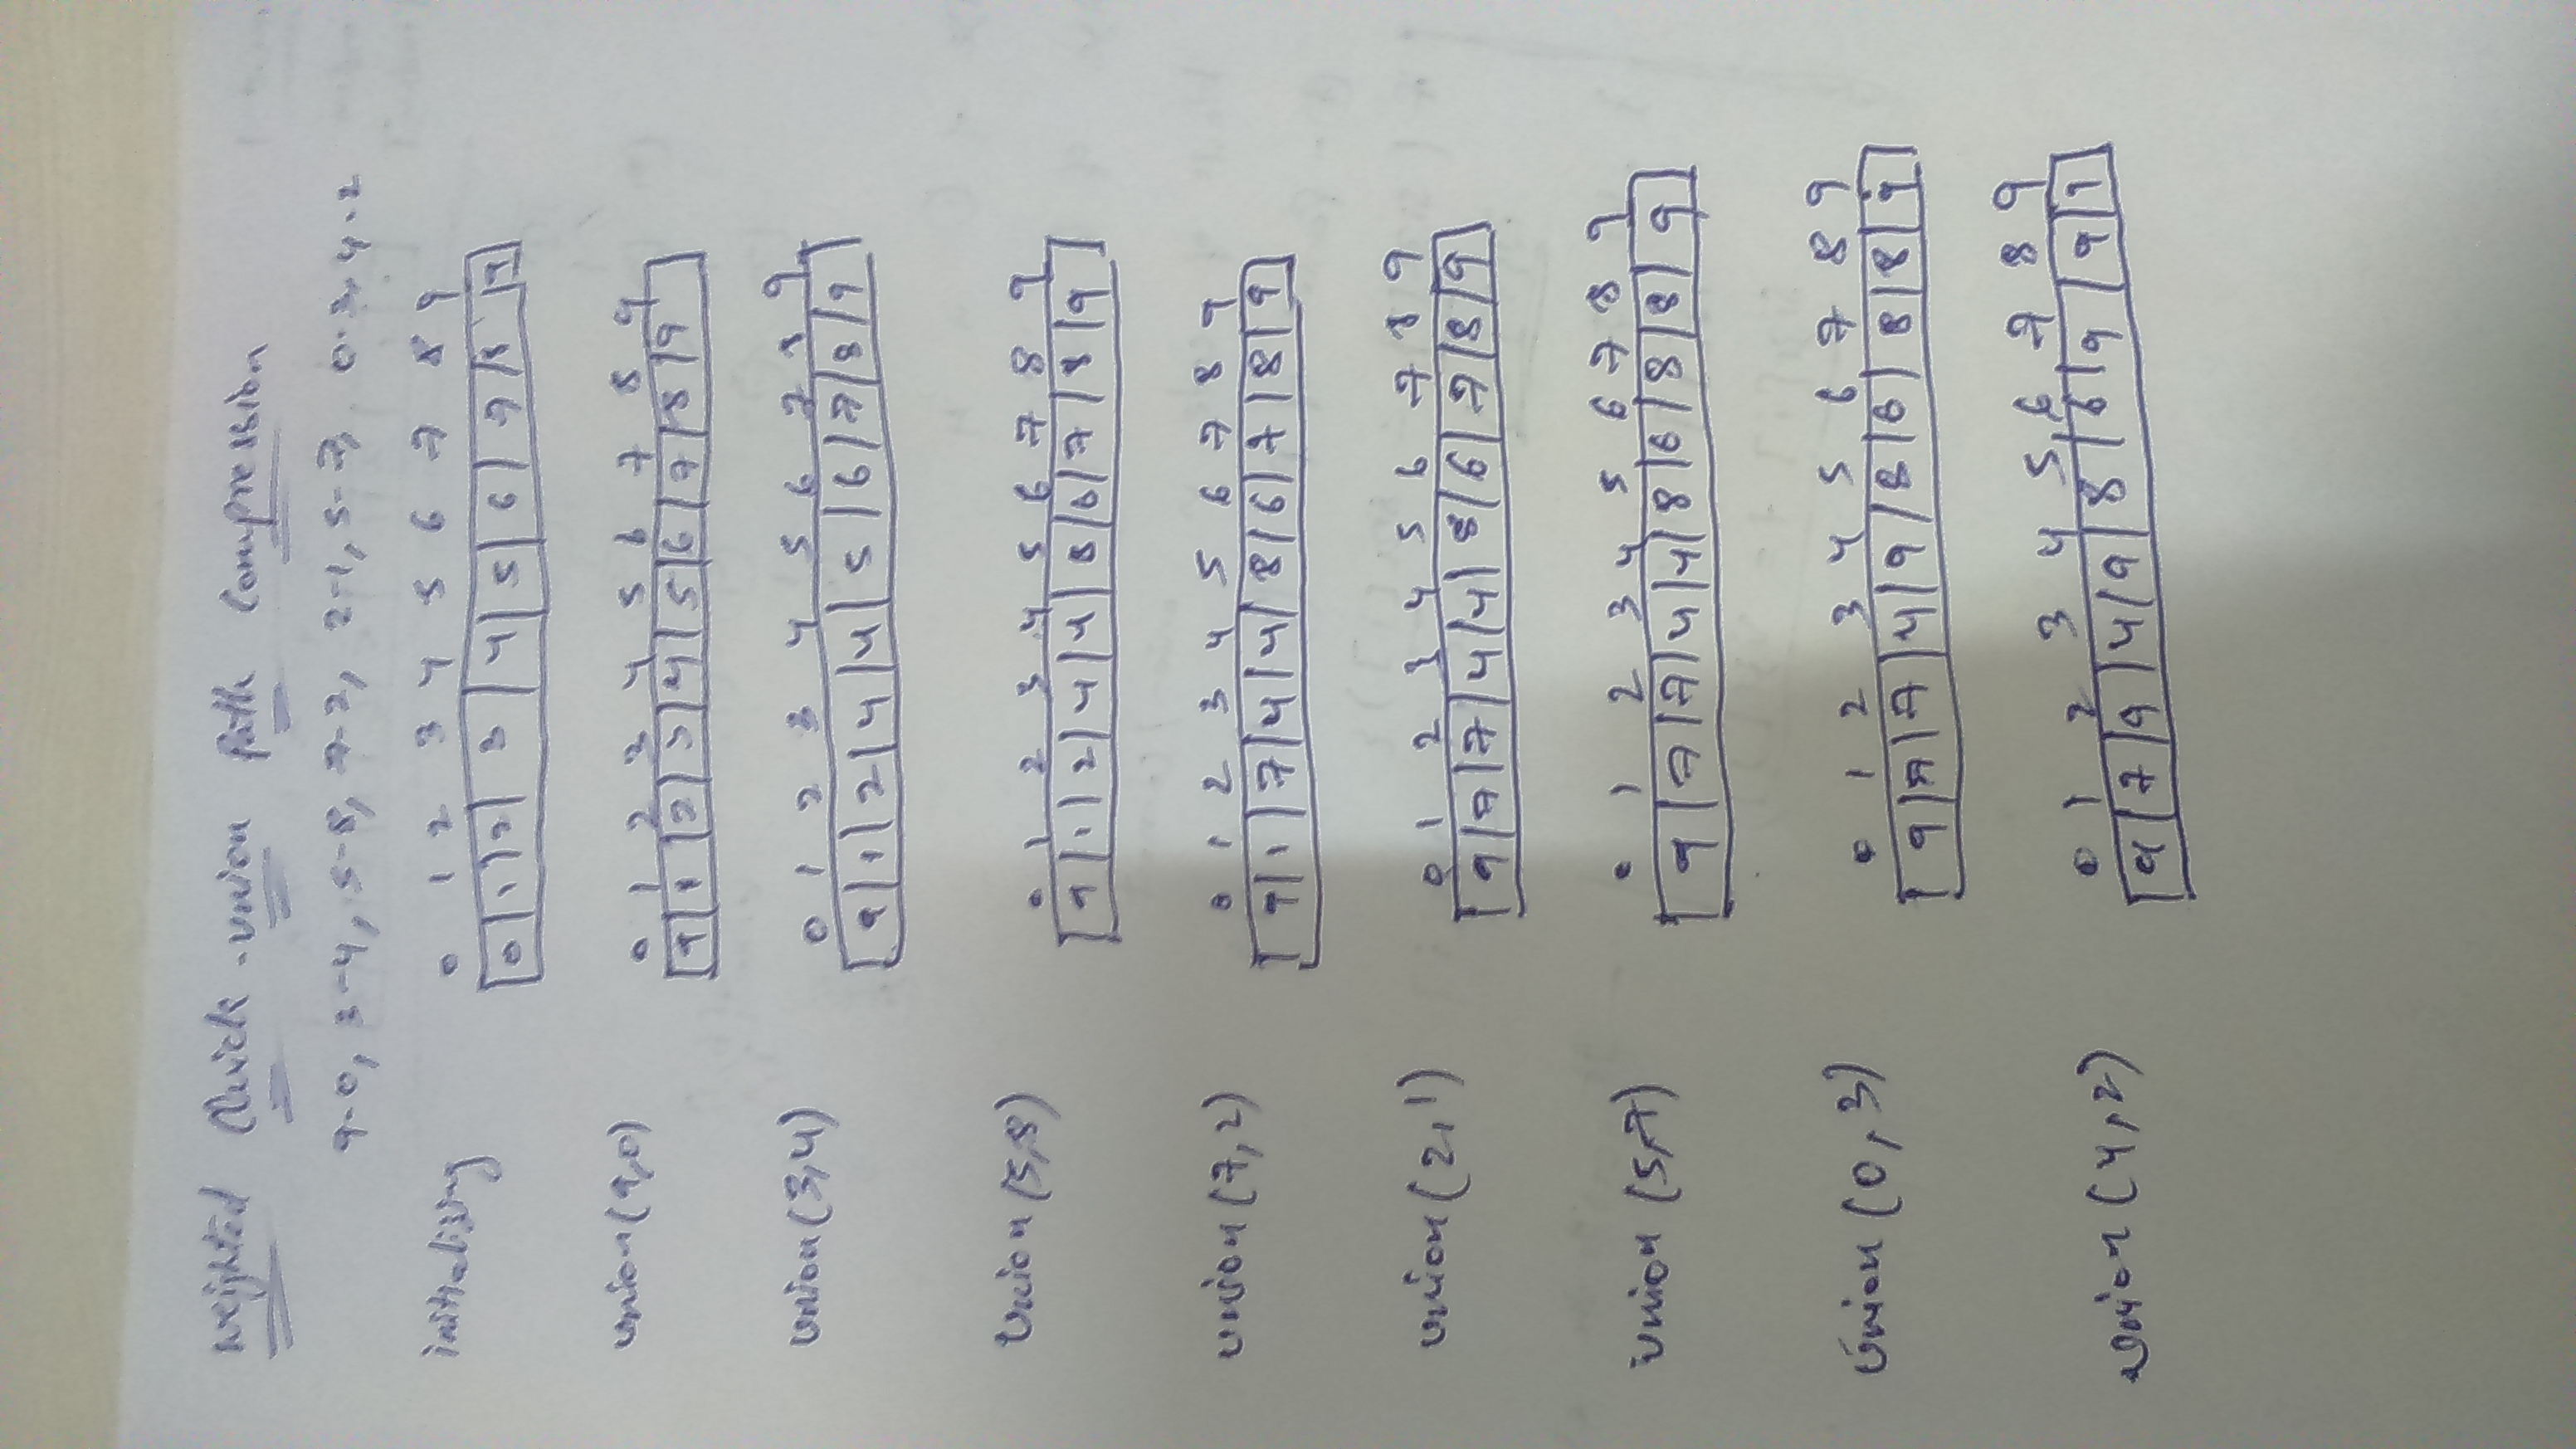 Weighted Quick-union Path Compression
9-0, 3-4, 5-8, 7-2, 2-1, 5-7, 0-3, 4-2
initializing
0 1 2 3 4 5 6 7 8 9
0 1 2 3 4 5 6 7 8 9
union(9,0)
0 1 2 3 4 5 6 7 8 9
9 1 2 3 4 5 6 7 8 9
union(3,4)
0 1 2 3 4 5 6 7 8 9
9 1 2 4 4 5 6 7 8 9
Union(5,8)
0 1 2 3 4 5 6 7 8 9
9 1 2 4 4 8 6 7 8 9
union(7,2)
0 1 2 3 4 5 6 7 8 9
9 1 7 4 4 8 6 7 8 9
union(2,1)
0 1 2 3 4 5 6 7 8 9
9 7 7 4 4 8 6 7 8 9
union(5,7)
0 1 2 3 4 5 6 7 8 9
9 7 7 4 4 8 6 8 8 9
Union(0,3)
0 1 2 3 4 5 6 7 8 9
9 7 7 4 9 8 6 8 8 9
union(4,2)
0 1 2 3 4 5 6 7 8 9
9 7 9 4 9 8 6 9 9 9